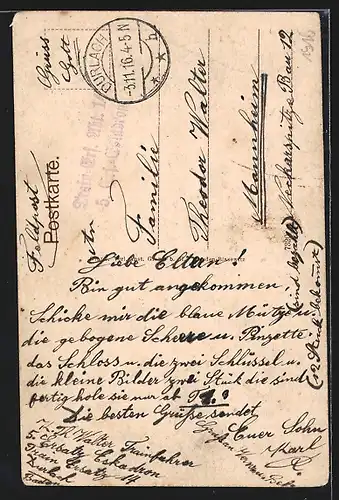 Grüss
Gott
DURLACH
-3.11.16.4-5N
b
Feldpost
Postkarte.
An
Familie
Theodor Walter
Mannheim
Neckarspitze Bau 12
Liebe Eltern!
Bin gut angekommen,
Schicke mir die blaue Mütze u.
die gebogene Schere u. Pinzette
das Schloss u. die zwei Schlüssel u.
die kleine Bilder zwei Stück die sind
fertig hole sie nur ab
Die besten Grüße sendet
Euer Sohn
Karl
Walter Trainfahrer
5. Ersatz Eskadron
Train Ersatz 14
Durlach
Baden